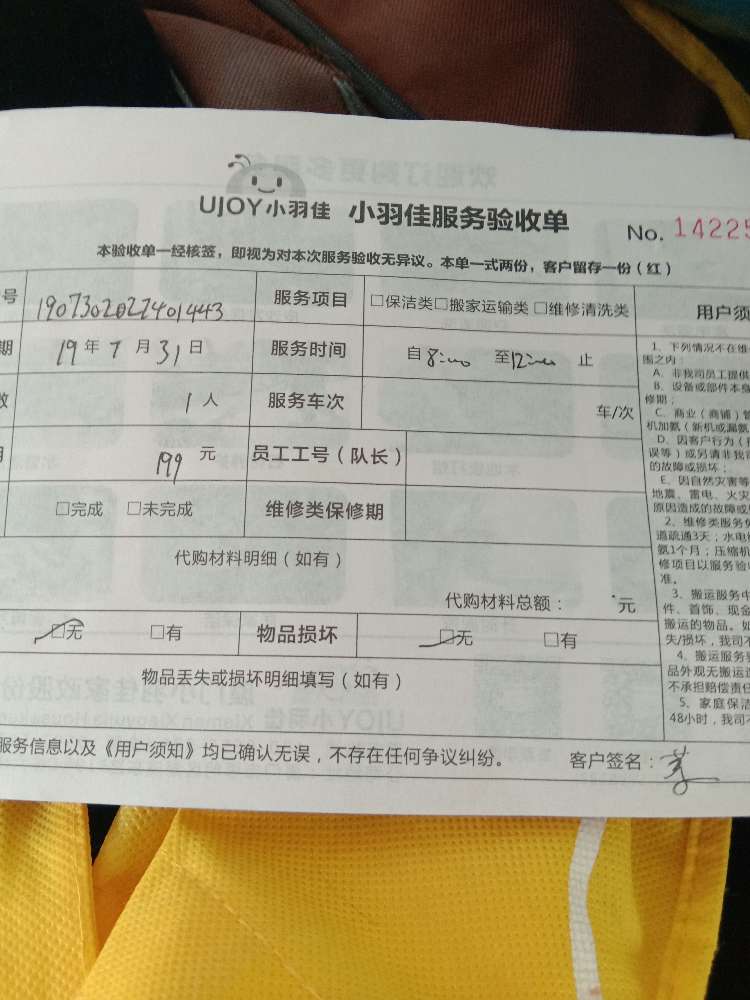 UJOY小羽佳 小羽佳服务验收单 No. 14225
本验收单一经核签，即视为对本次服务验收无异议。本单一式两份，客户留存一份（红）
号 服务项目 □保洁类□搬家运输类 □维修清洗类 用户须
期 19年7月31日 服务时间 自8:00 至12:00 止
数 1人 服务车次 车/次
199 元 员工工号（队长）
□完成 □未完成 维修类保修期
代购材料明细（如有）
代购材料总额： 元
□无 □有 物品损坏 □无 □有
物品丢失或损坏明细填写（如有）
服务信息以及《用户须知》均已确认无误，不存在任何争议纠纷。 客户签名：
1、下列情况不在维
围之内：
A、非我司员工提供
B、设备或部件本身
修期；
C、商业（商铺）管
机加氨（新机或漏氨
D、因客户行为（
误等）或另请非我司
的故障或损坏；
E、因自然灾害等
地震、雷电、火灾
原因造成的故障或
2、维修类服务
道疏通3天；水电
氨1个月；压缩机
修项目以服务验
准。
3、搬运服务中
件、首饰、现金
搬运的物品。如
失/损坏，我司不
4、搬运服务
品外观无搬运
不承担赔偿责任
5、家庭保洁
48小时，我司